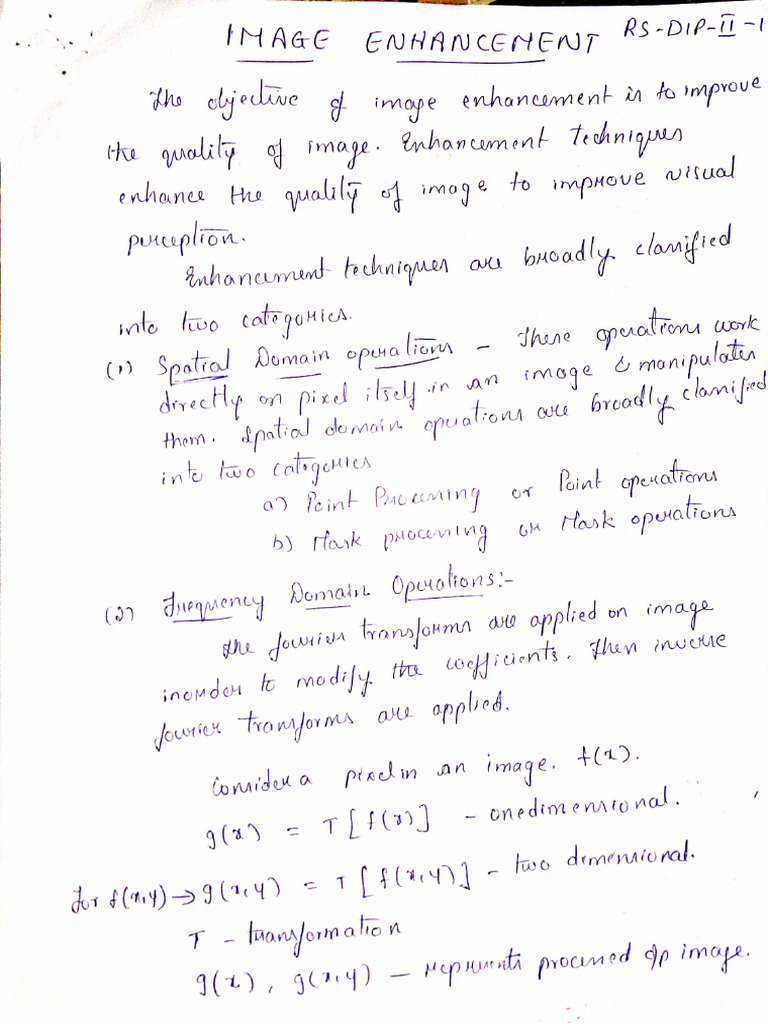 IMAGE ENHANCEMENT RS-DIP-II-1
The objective of image enhancement is to improve
the quality of image. Enhancement techniques
enhance the quality of image to improve visual
perception.
Enhancement techniques are broadly classified
into two categories.
(1) Spatial Domain operations - These operations work
directly on pixel itself in an image & manipulates
them. Spatial domain operations are broadly classified
into two categories
a) Point Processing or Point operations
b) Mask processing or Mask operations
(2) Frequency Domain Operations:-
The fourier transforms are applied on image
inorder to modify the coefficients. Then inverse
fourier transforms are applied.
Consider a pixel in an image. f(x).
g(x) = T[f(x)] - onedimensional.
For f(x,y) → g(x,y) = T[f(x,y)] - two dimensional.
T - transformation
g(x), g(x,y) - represents processed o/p image.